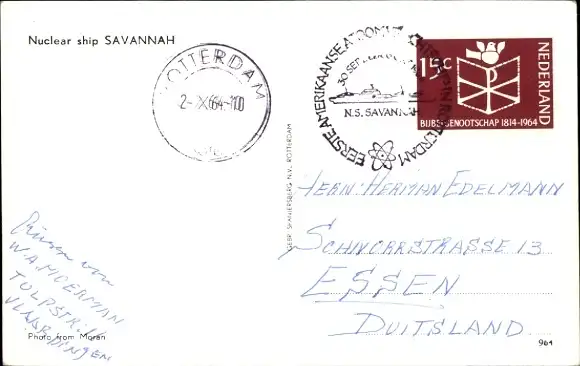 Nuclear ship SAVANNAH
ROTTERDAM
2-X64-1100
EERSTE AMERIKAANSE ATOOM IN ROTTERDAM
30 SEP.
N.S. SAVANNAH
15c
NEDERLAND
BIJBELGENOOTSCHAP 1814-1964
GEBR. SPANJERSBERG N.V., ROTTERDAM
HERN: HERMAN EDELMANN
SCHNORRSTRASSE 13
ESSEN
DUITSLAND
von
W.A. MOERMAN
TULPSTR.
VLAARDINGEN
Photo from Moran
964